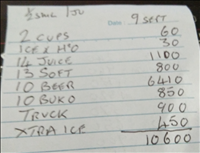 ½ SMIL / JU
Date 9 SEPT
2 CUPS 60
ICE & H²O 30
14 JUICE 1100
13 SOFT 800
10 BEER 6410
10 BUKO 850
TRUCK 900
XTRA ICE 450
10600